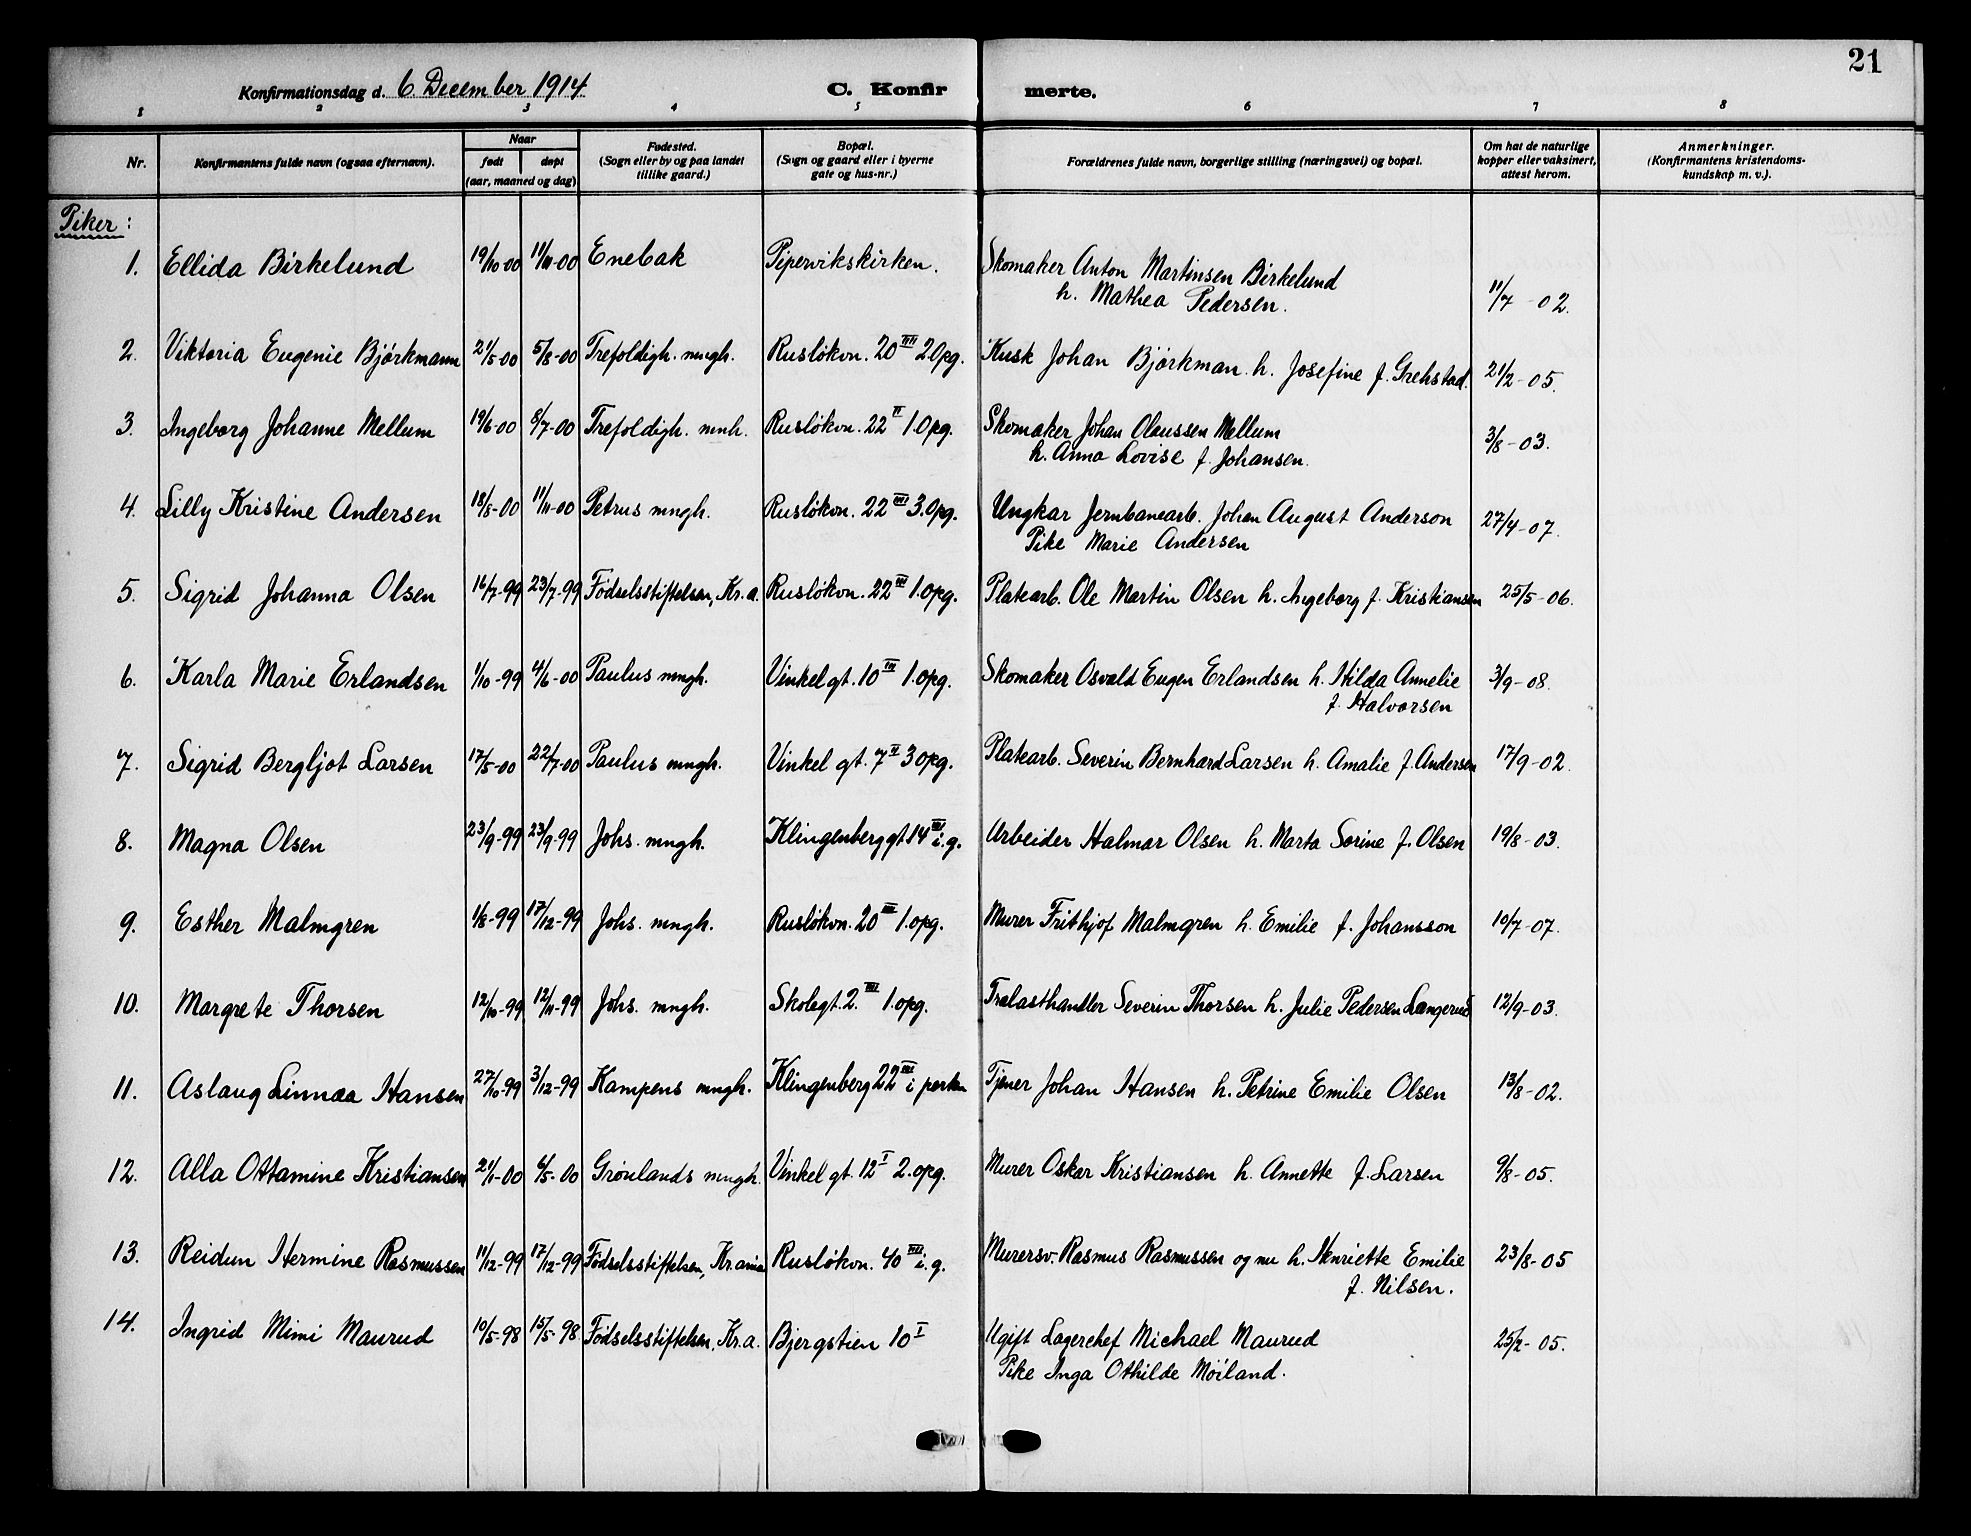 21
Konfirmationsdag d. 6 December 1914 C. Konfir merte.
1 2 3 4 5 6 7 8
Nr. Konfirmantens fulde navn (ogsaa efternavn). Naar født døpt (aar, maaned og dag) Fødested. (Sogn eller by og paa landet tillike gaard.) Bopæl. (Sogn og gaard eller i byerne gate og hus-nr.) Forældrenes fulde navn, borgerlige stilling (næringsvei) og bopæl. Om hat de naturlige kopper eller vaksinert, attest herom. Anmerkninger. (Konfirmantens kristendoms-kundskap m. v.).
Piker:
1. Ellida Birkelund 19/10-00 11/11-00 Enebak Pipervikskirken. Skomaker Anton Martinsen Birkelund
h. Mathea Pedersen. 11/7-02.
2. Viktoria Eugenie Bjørkmann 21/5-00 5/8-00 Trefoldigh. mngh. Rusløkvn. 20 III 2.Opg. Kusk Johan Bjørkman h. Josefine f. Grehstad. 21/2-05.
3. Ingeborg Johanne Mellum 19/6-00 8/7-00 Trefoldigh. mnh. Rusløkvn. 22 II 1.Opg. Skomaker Johan Olaussen Mellum
h. Anna Lovise f. Johansen. 3/8-03.
4. Lilly Kristine Andersen 18/8-00 11/11-00 Petrus mngh. Rusløkvn. 22 III 3.Opg. Ungkar Jernbanearb. Johan August Anderson
Pike Marie Andersen 27/4-07.
5. Sigrid Johanna Olsen 16/7-99 23/7-99 Fødselsstiftelsen, Kr.a. Rusløkvn. 22 III 1.opg. Platearb. Ole Martin Olsen h. Ingeborg f. Kristiansen 25/5-06.
6. Karla Marie Erlandsen 1/10-99 4/6-00 Paulus mngh. Vinkel gt. 10 III 1.opg. Skomaker Osvald Eugen Erlandsen h. Hilda Annelie
f. Halvorsen 3/9-08.
7. Sigrid Bergljot Larsen 17/5-00 22/7-00 Paulus mngh. Vinkel gt. 7 II 3 opg. Platearb. Severin Bernhard Larsen h. Amalie f. Andersen 17/9-02.
8. Magna Olsen 23/9-99 23/9-99 Johs. mngh. Klingenberg gt 14 III i.g. Arbeider Halmar Olsen h. Marta Sorine f. Olsen 19/8-03.
9. Esther Malmgren 1/8-99 17/12-99 Johs. mngh. Rusløkvn. 20 III 1.opg. Murer Frithjof Malmgren h. Emilie f. Johansson 10/7-07.
10. Margrete Thorsen 12/10-99 12/11-99 Johs. mngh. Skolegt. 2. III 1.opg. Trælasthandler Severin Thorsen h. Julie Pedersen Langerud 12/9-03.
11. Aslaug Linnæa Hansen 27/10-99 3/12-99 Kampens mngh. Klingenberg 22 III i porten Tjener Johan Hansen h. Petrine Emilie Olsen 13/8-02.
12. Alla Ottamine Kristiansen 21/1-00 6/5-00 Grønlands mngh. Vinkel gt. 12 I 2.opg. Murer Oskar Kristiansen h. Annette f. Larsen 9/8-05.
13. Reidun Hermine Rasmussen 11/12-99 17/12-99 Fødselsstiftelsen, Kr.ania Rusløkvn. 40 III i.g. Murersv. Rasmus Rasmussen og nu h. Henriette Emilie
f. Nilsen. 23/8-05
14. Ingrid Mimi Maurud 10/5-98 15/5-98 Fødselsstiftelsen, Kr.a. Bjergstien 10 I Ugift Lagerchef Michael Maurud
Pike Inga Othilde Møiland. 25/2-05.